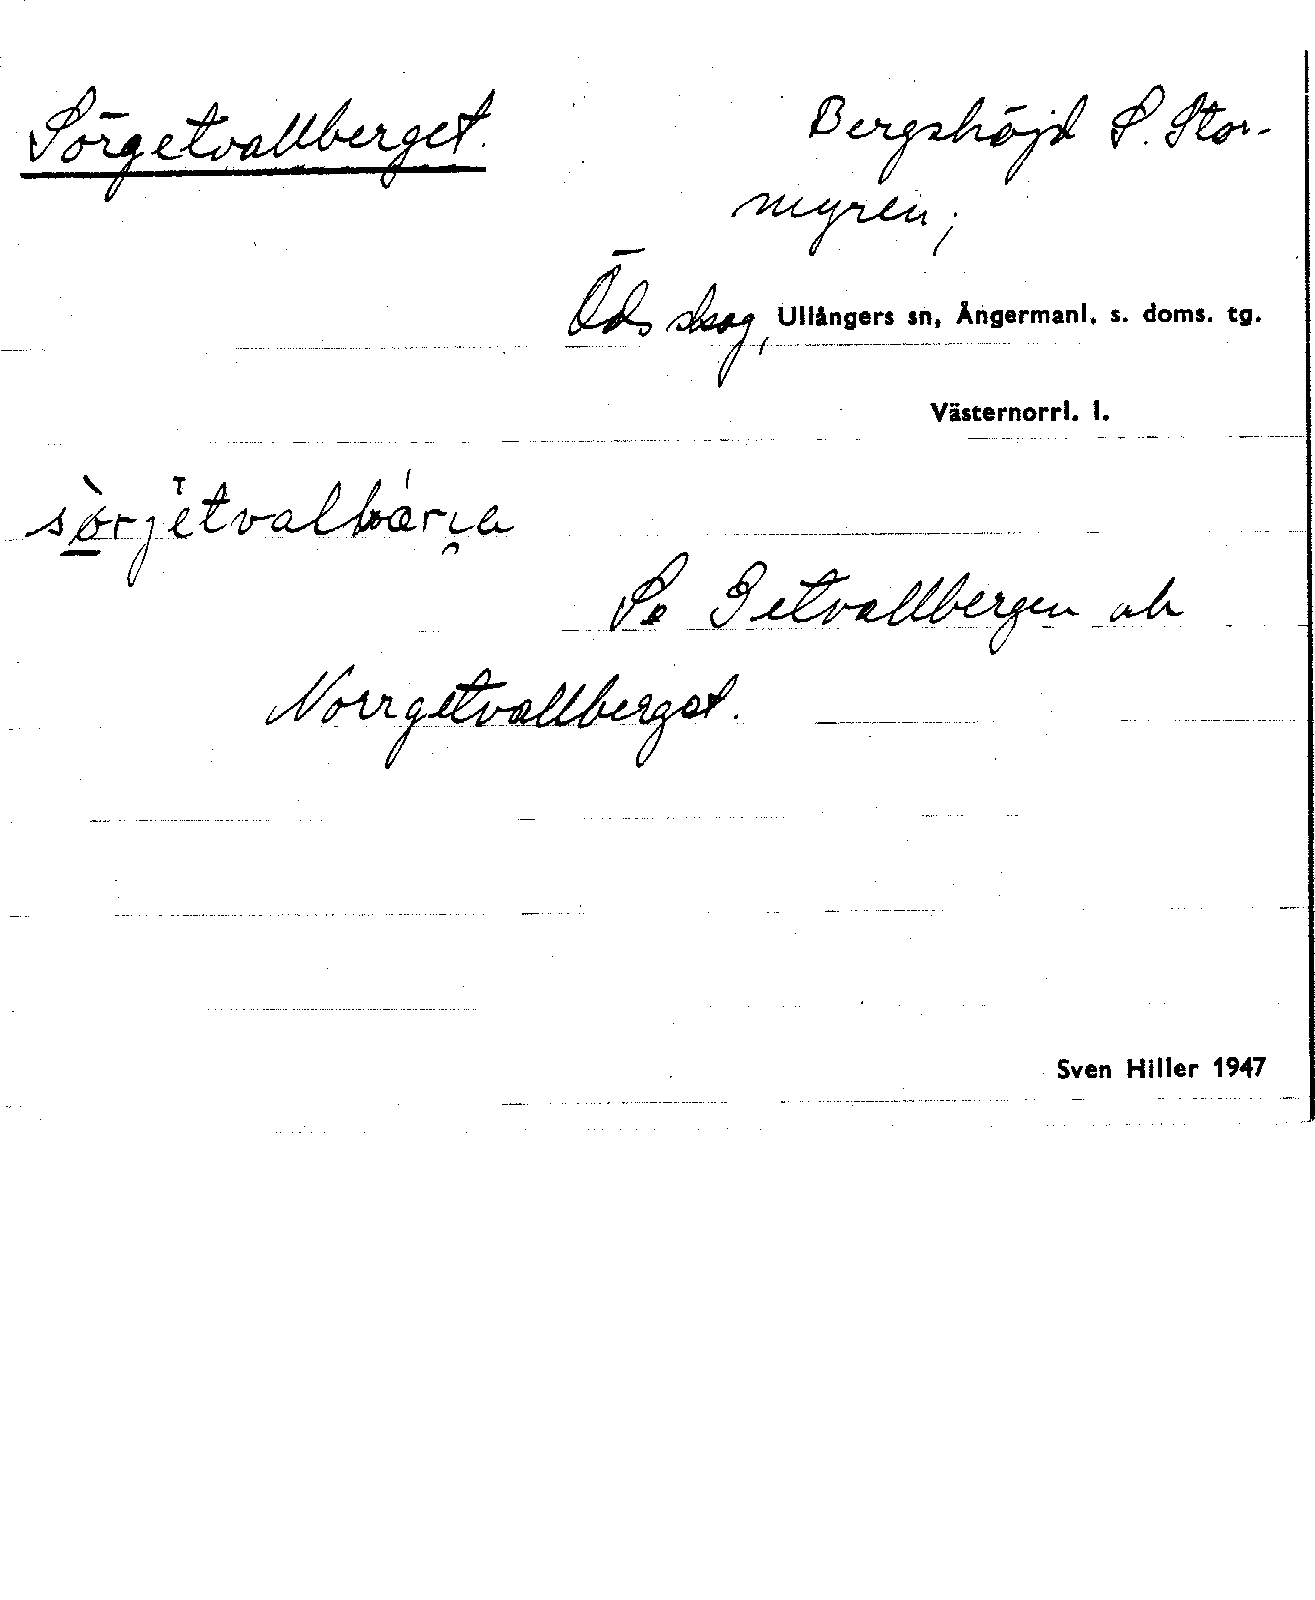 Sörgetvallberget.
Bergshöjd S. Stor-
myren;
Öds skog, Ullångers sn, Ångermanl. s. doms. tg.
Västernorrl. l.
Se Getvallbergen och
Norrgetvallberget.
Sven Hiller 1947